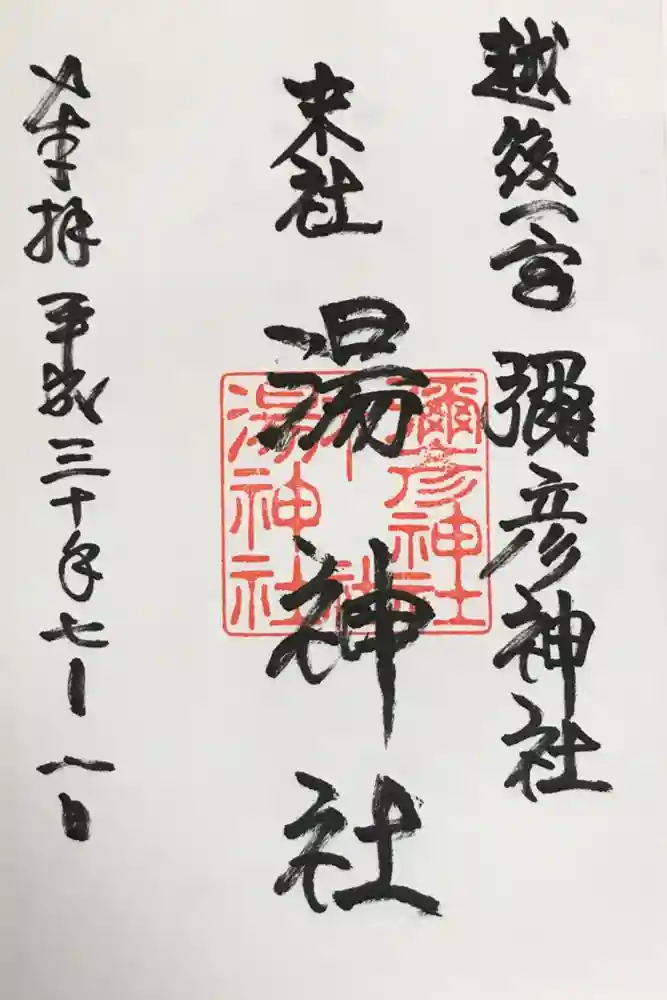 越後一宮 彌彦神社
末社 湯神社
彌彦神社
末社
湯神社
奉拝 平成三十年七月八日